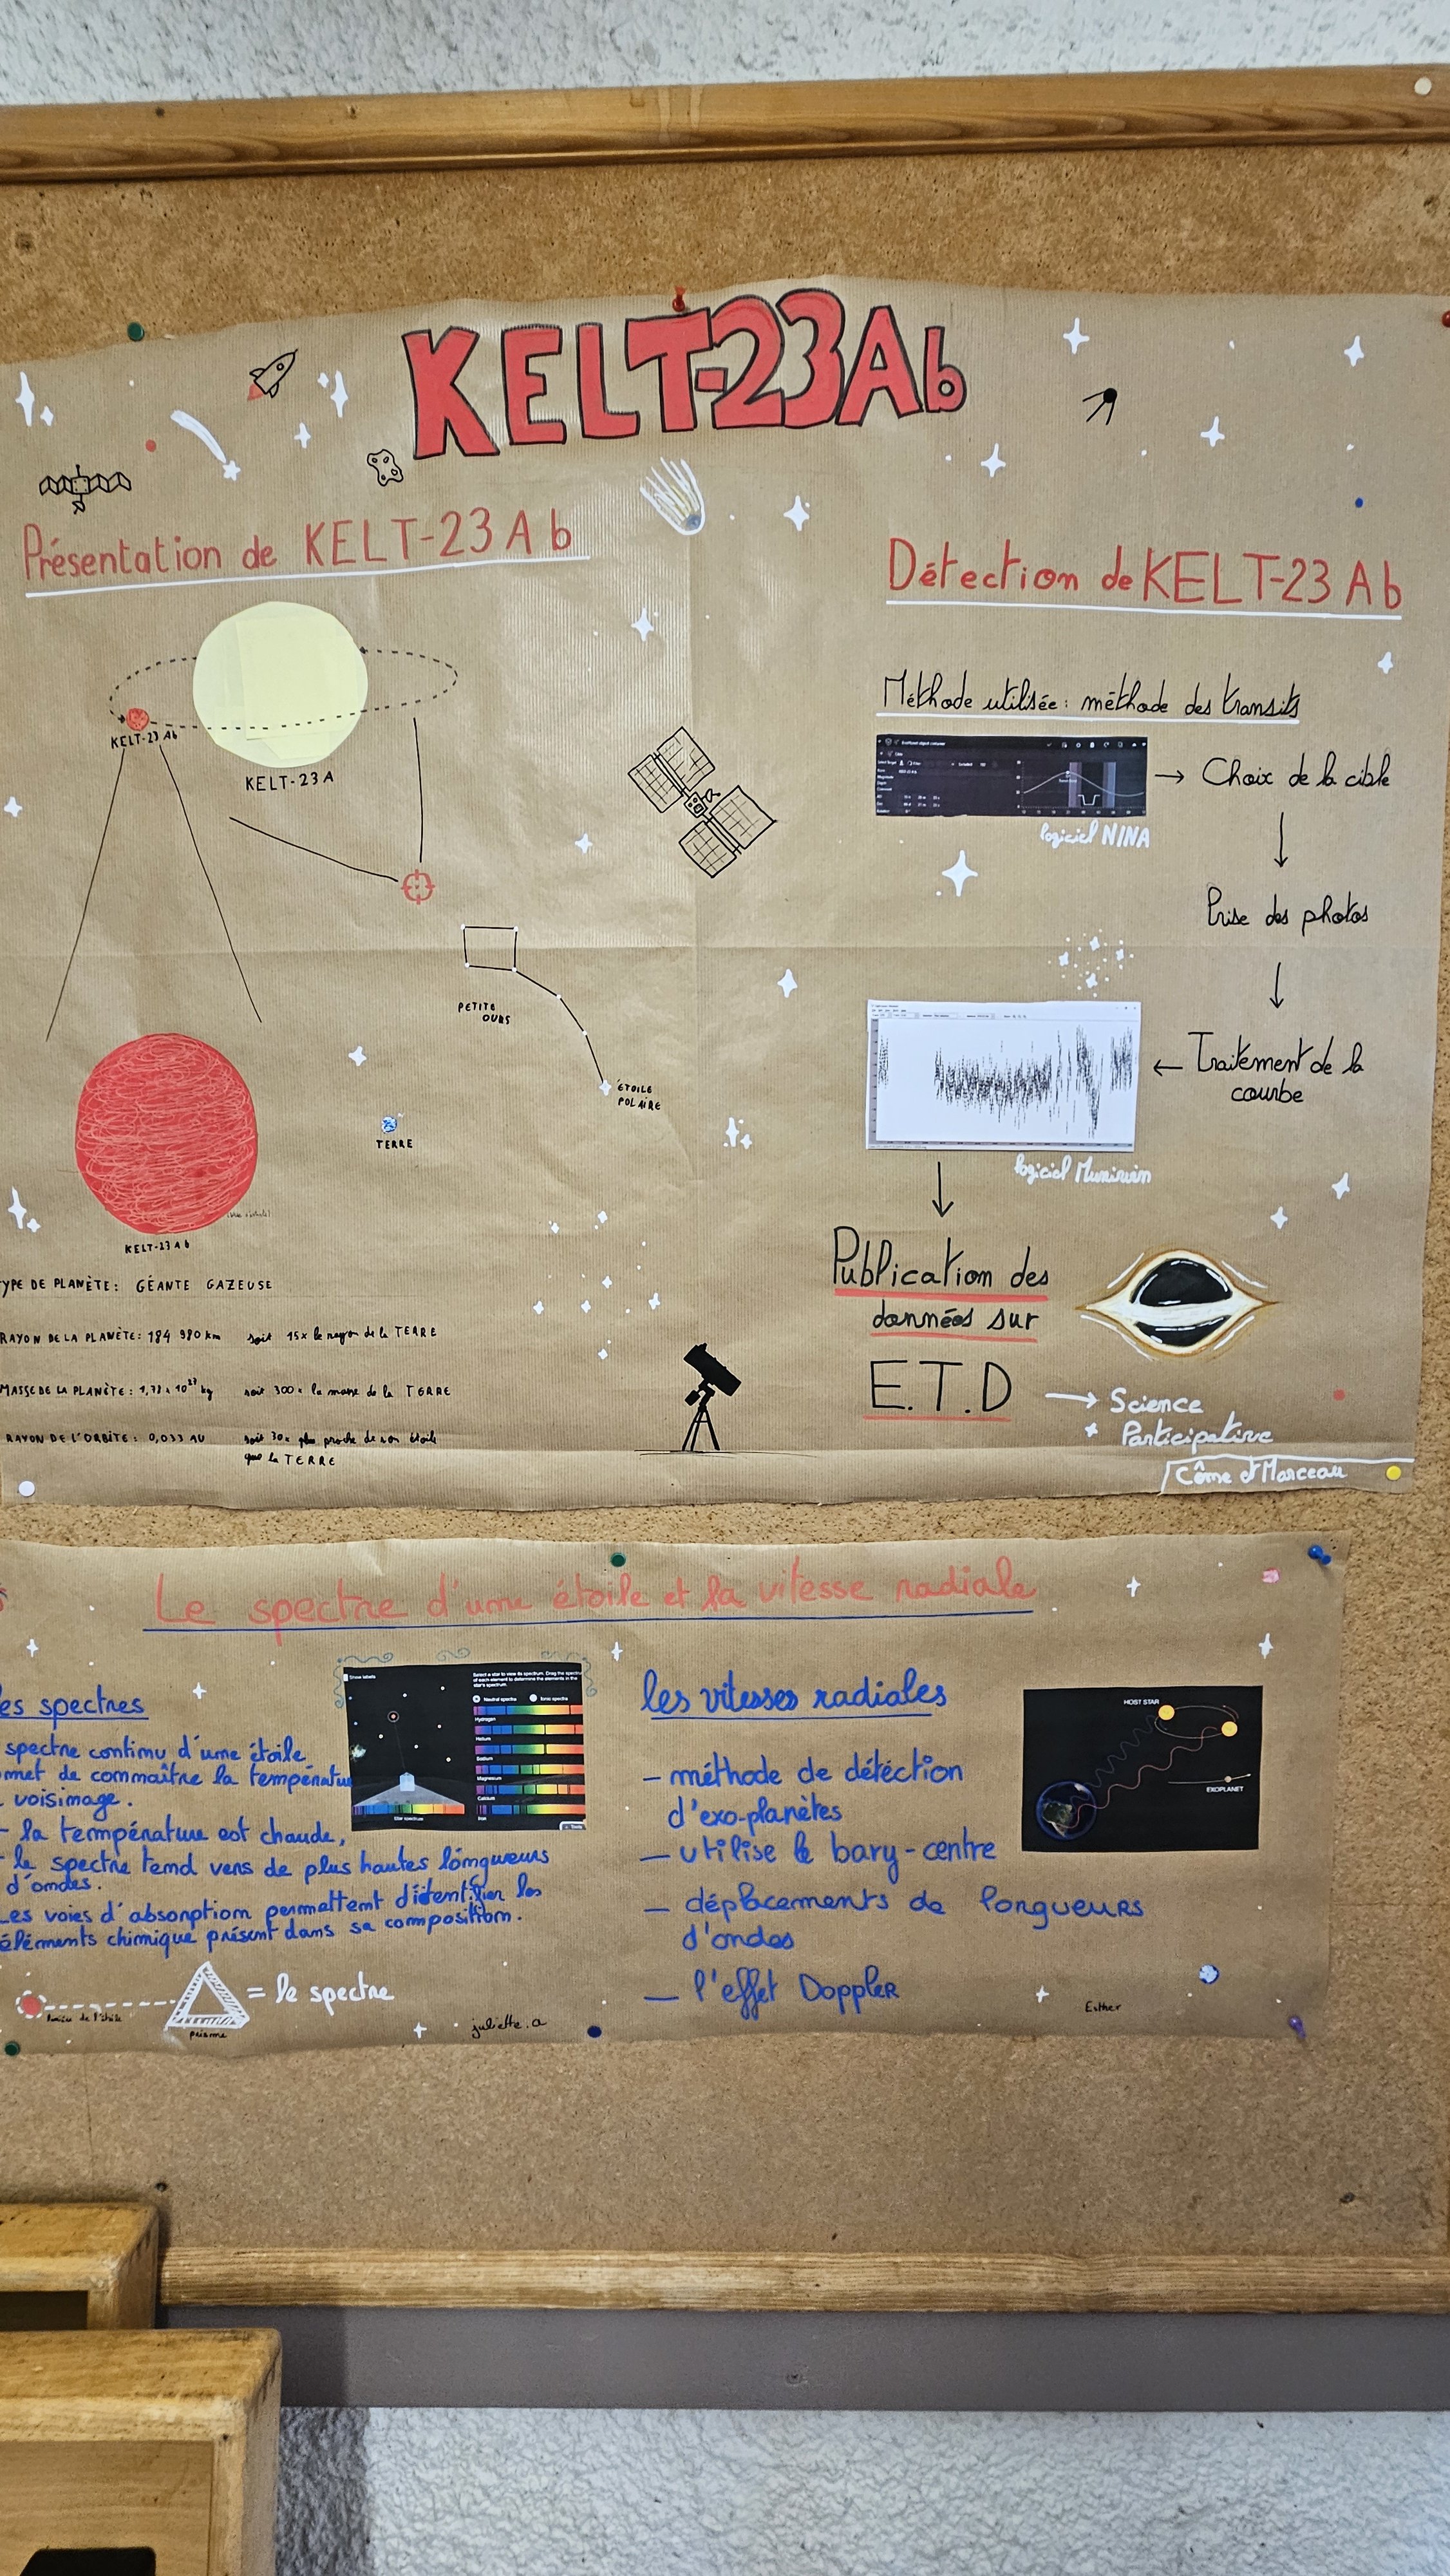 KELT-23Ab
Présentation de KELT-23 Ab
KELT-23 Ab
KELT-23 A
PETITE
OURS
ÉTOILE
POLAIRE
TERRE
KELT-23 Ab
YPE DE PLANÈTE: GÉANTE GAZEUSE
RAYON DE LA PLANÈTE: 184 980 km soit 15x le rayon de la TERRE
MASSE DE LA PLANÈTE: 1,78 x 10²⁷ kg soit 300x la masse de la TERRE
RAYON DE L'ORBITE: 0,033 AU soit 30x plus proche de son étoile
que la TERRE
Détection de KELT-23 Ab
Méthode utilisée: méthode des transits
→ Choix de la cible
logiciel NINA
Prise des photos
← Traitement de la
courbe
logiciel Muniwin
Publication des
données sur
E.T.D → Science
Participative
Côme et Marceau
Le spectre d'une étoile et la vitesse radiale
es spectres
spectre continu d'une étoile
met de connaître la températu
voisinage.
la température est chaude,
le spectre tend vers de plus hautes longueurs
d'ondes.
Les voies d'absorption permettent d'identifier les
éléments chimique présent dans sa composition.
Show labels
Select a star to view its spectrum. Drag the spectru
of each element to determine the elements in the
star's spectrum.
Neutral spectra Ionic spectra
Hydrogen
Helium
Sodium
Magnesium
Calcium
Iron
Star spectrum
lumière de l'étoile
prisme
= le spectre
juliette.a
les vitesses radiales
- méthode de détéction
d'exo-planètes
- utilise le bary-centre
- déplacements de longueurs
d'ondes
- l'effet Doppler
HOST STAR
EXOPLANET
Esther